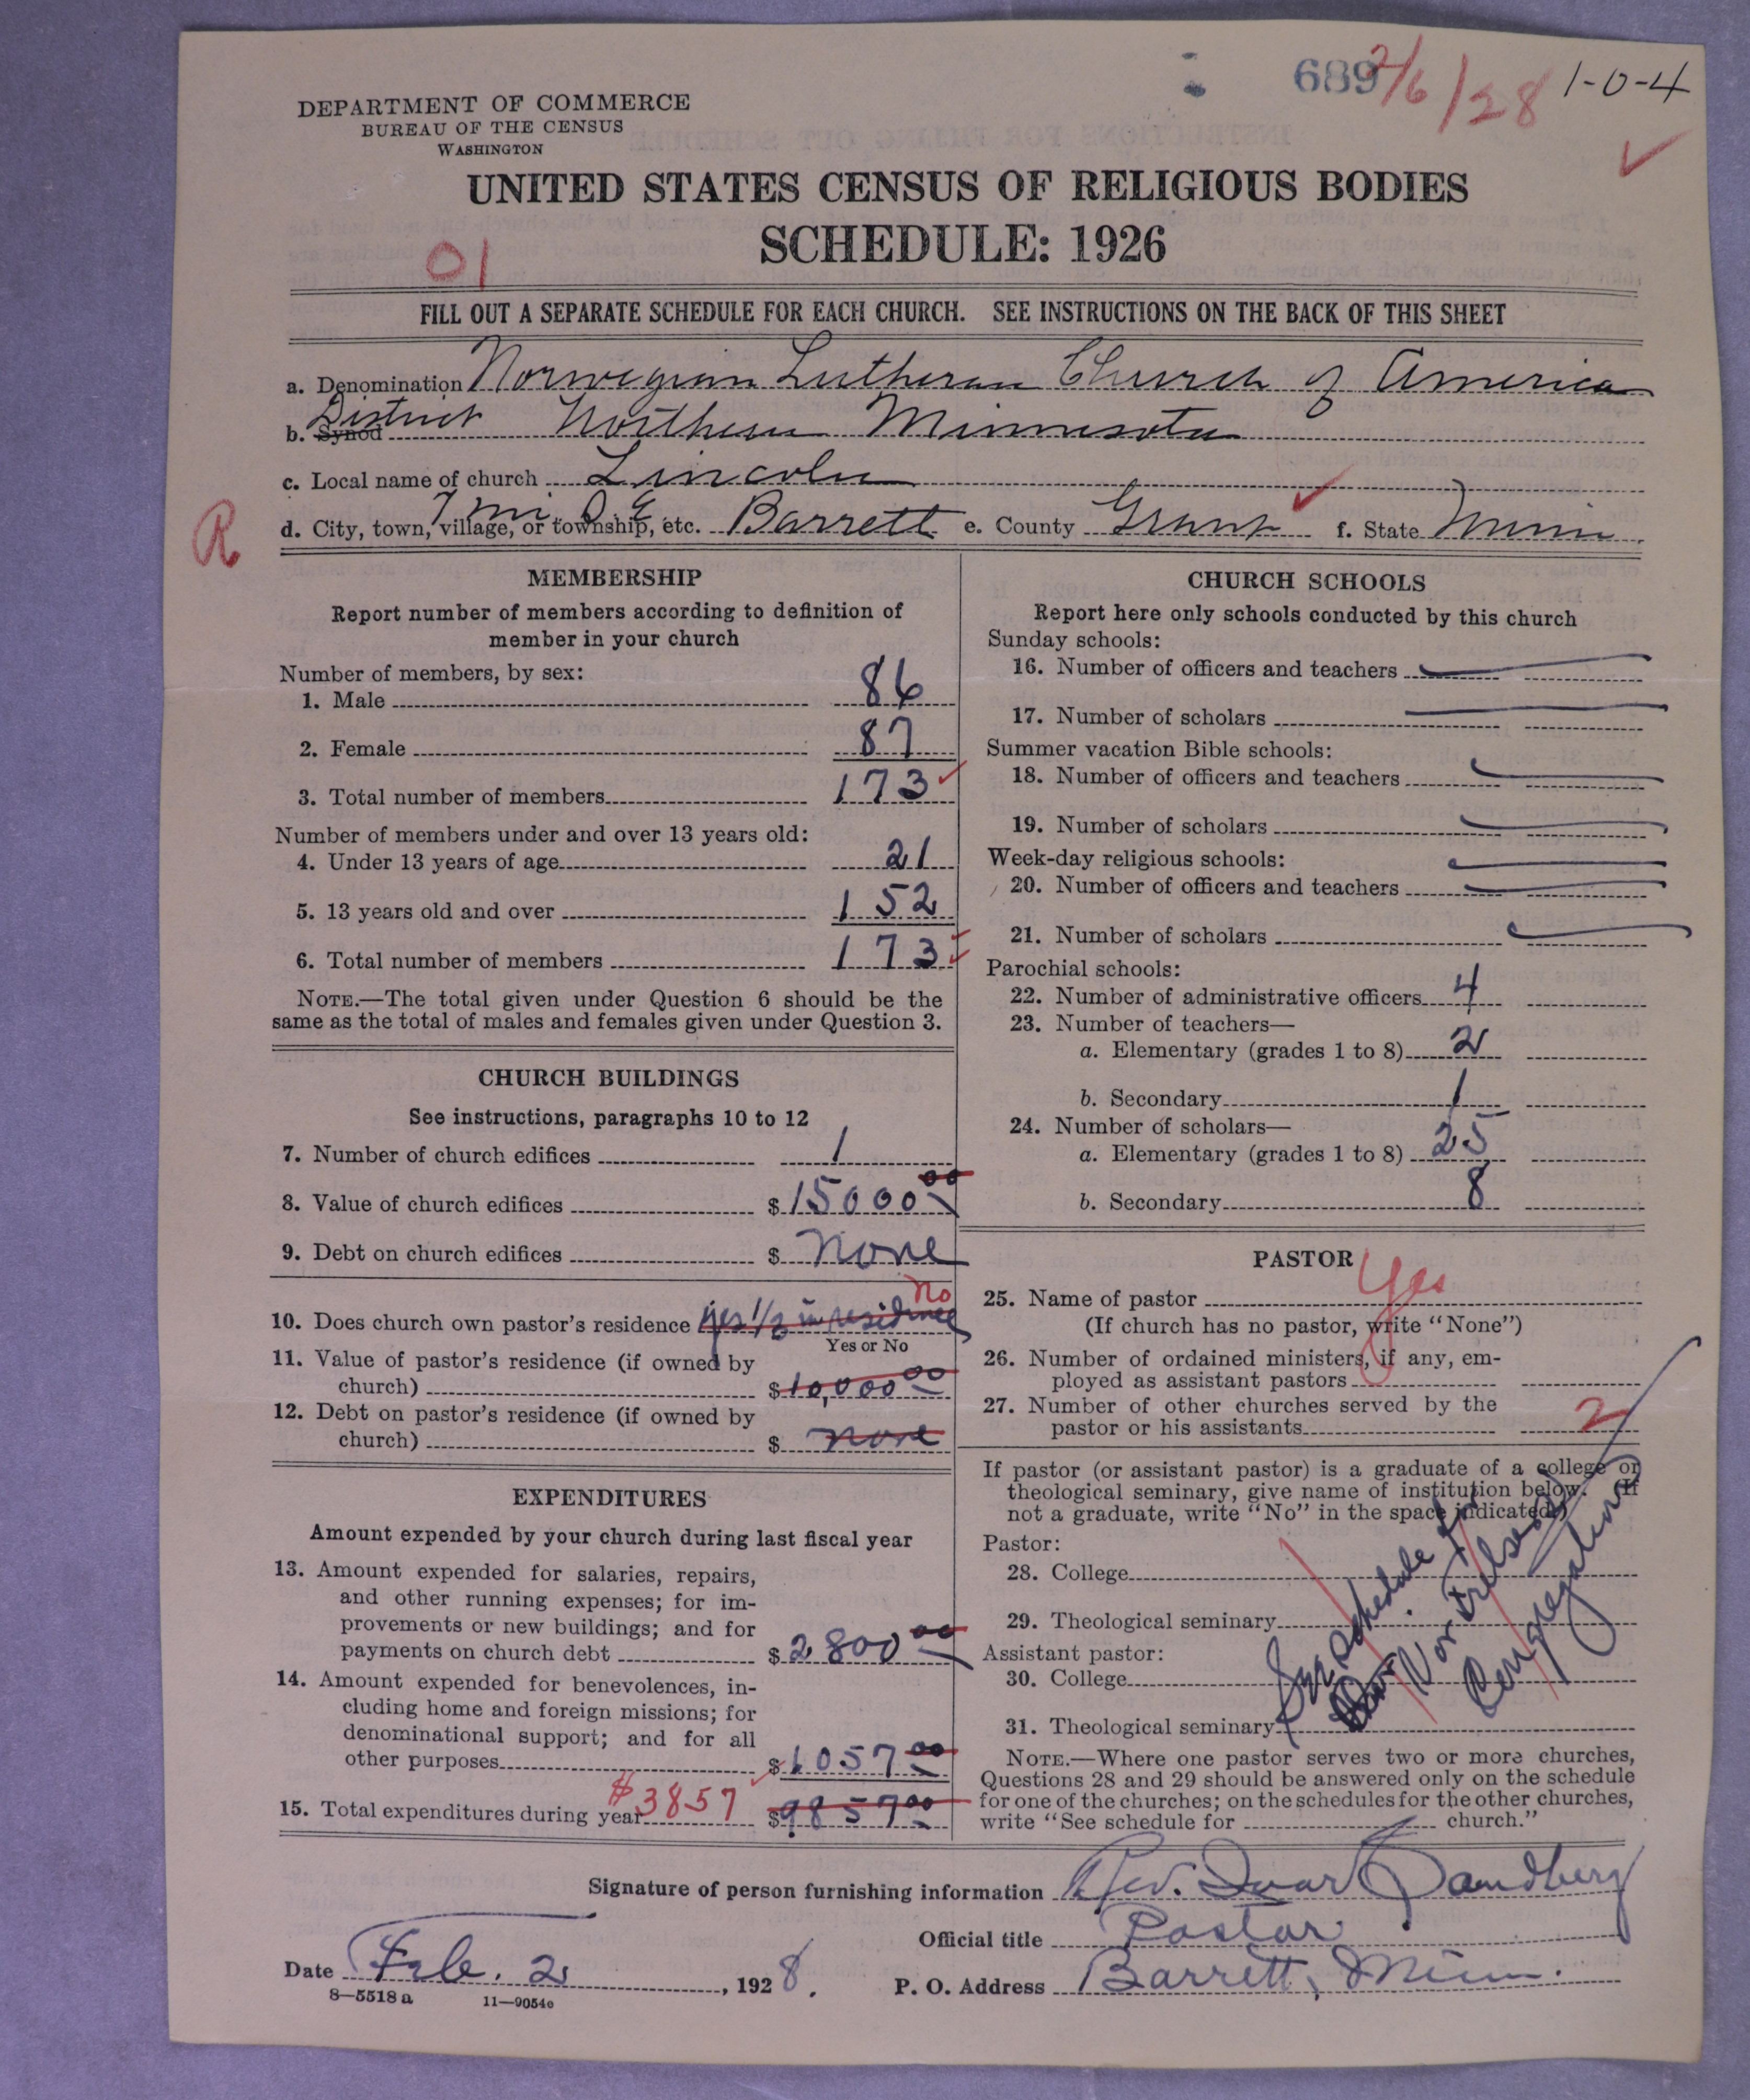 689 2/6/28 1-0-4
DEPARTMENT OF COMMERCE
BUREAU OF THE CENSUS
WASHINGTON
UNITED STATES CENSUS OF RELIGIOUS BODIES
SCHEDULE: 1926
01
FILL OUT A SEPARATE SCHEDULE FOR EACH CHURCH. SEE INSTRUCTIONS ON THE BACK OF THIS SHEET
a. Denomination Norwegian Lutheran Church of America
b. Synod District Northern Minnesota
c. Local name of church Lincoln
R
d. City, town, village, or township, etc. 7 mi. S.E. Barrett e. County Grant f. State Minn
MEMBERSHIP
Report number of members according to definition of
member in your church
Number of members, by sex:
1. Male 86
2. Female 87
3. Total number of members 173
Number of members under and over 13 years old:
4. Under 13 years of age 21
5. 13 years old and over 152
6. Total number of members 173
NOTE.—The total given under Question 6 should be the
same as the total of males and females given under Question 3.
CHURCH BUILDINGS
See instructions, paragraphs 10 to 12
7. Number of church edifices 1
8. Value of church edifices $15000 00
9. Debt on church edifices $ None
10. Does church own pastor's residence yes 1/3 in residence No
Yes or No
11. Value of pastor's residence (if owned by
church) $10,000 00
12. Debt on pastor's residence (if owned by
church) $ none
EXPENDITURES
Amount expended by your church during last fiscal year
13. Amount expended for salaries, repairs,
and other running expenses; for im-
provements or new buildings; and for
payments on church debt $2800 00
14. Amount expended for benevolences, in-
cluding home and foreign missions; for
denominational support; and for all
other purposes $1057 00
15. Total expenditures during year $3857 $9857 00
CHURCH SCHOOLS
Report here only schools conducted by this church
Sunday schools:
16. Number of officers and teachers
17. Number of scholars
Summer vacation Bible schools:
18. Number of officers and teachers
19. Number of scholars
Week-day religious schools:
20. Number of officers and teachers
21. Number of scholars
Parochial schools:
22. Number of administrative officers 4
23. Number of teachers—
a. Elementary (grades 1 to 8) 2
b. Secondary 1
24. Number of scholars—
a. Elementary (grades 1 to 8) 25
b. Secondary 8
PASTOR
25. Name of pastor Yes
(If church has no pastor, write "None")
26. Number of ordained ministers, if any, em-
ployed as assistant pastors
27. Number of other churches served by the
pastor or his assistants 2
If pastor (or assistant pastor) is a graduate of a college or
theological seminary, give name of institution below. (If
not a graduate, write "No" in the space indicated.)
Pastor:
28. College
29. Theological seminary
Assistant pastor:
30. College
31. Theological seminary
See schedule for
Vor Frelsers
Congregation
NOTE.—Where one pastor serves two or more churches,
Questions 28 and 29 should be answered only on the schedule
for one of the churches; on the schedules for the other churches,
write "See schedule for church."
Signature of person furnishing information Rev. Ivar Sandberg
Official title Pastor
Date Feb. 2, 1928. P. O. Address Barrett, Minn.
8—5518 a 11—9054e